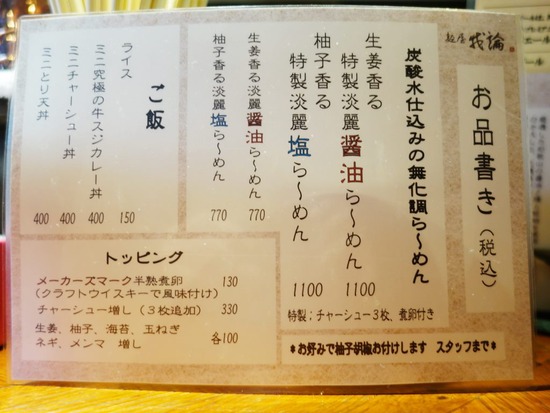 麺屋 我論
お品書き(税込)
炭酸水仕込みの無化調ら〜めん
生姜香る
特製淡麗醤油ら〜めん 1100
柚子香る
特製淡麗塩ら〜めん 1100
特製;チャーシュー3枚、煮卵付き
*お好みで柚子胡椒お付けします スタッフまで*
生姜香る淡麗醤油ら〜めん 770
柚子香る淡麗塩ら〜めん 770
ご飯
ライス 150
ミニ究極の牛スジカレー丼 400
ミニチャーシュー丼 400
ミニとり天丼 400
トッピング
メーカーズマーク半熟煮卵 130
(クラフトウイスキーで風味付け)
チャーシュー増し(3枚追加) 330
生姜、柚子、海苔、玉ねぎ
ネギ、メンマ 増し 各100